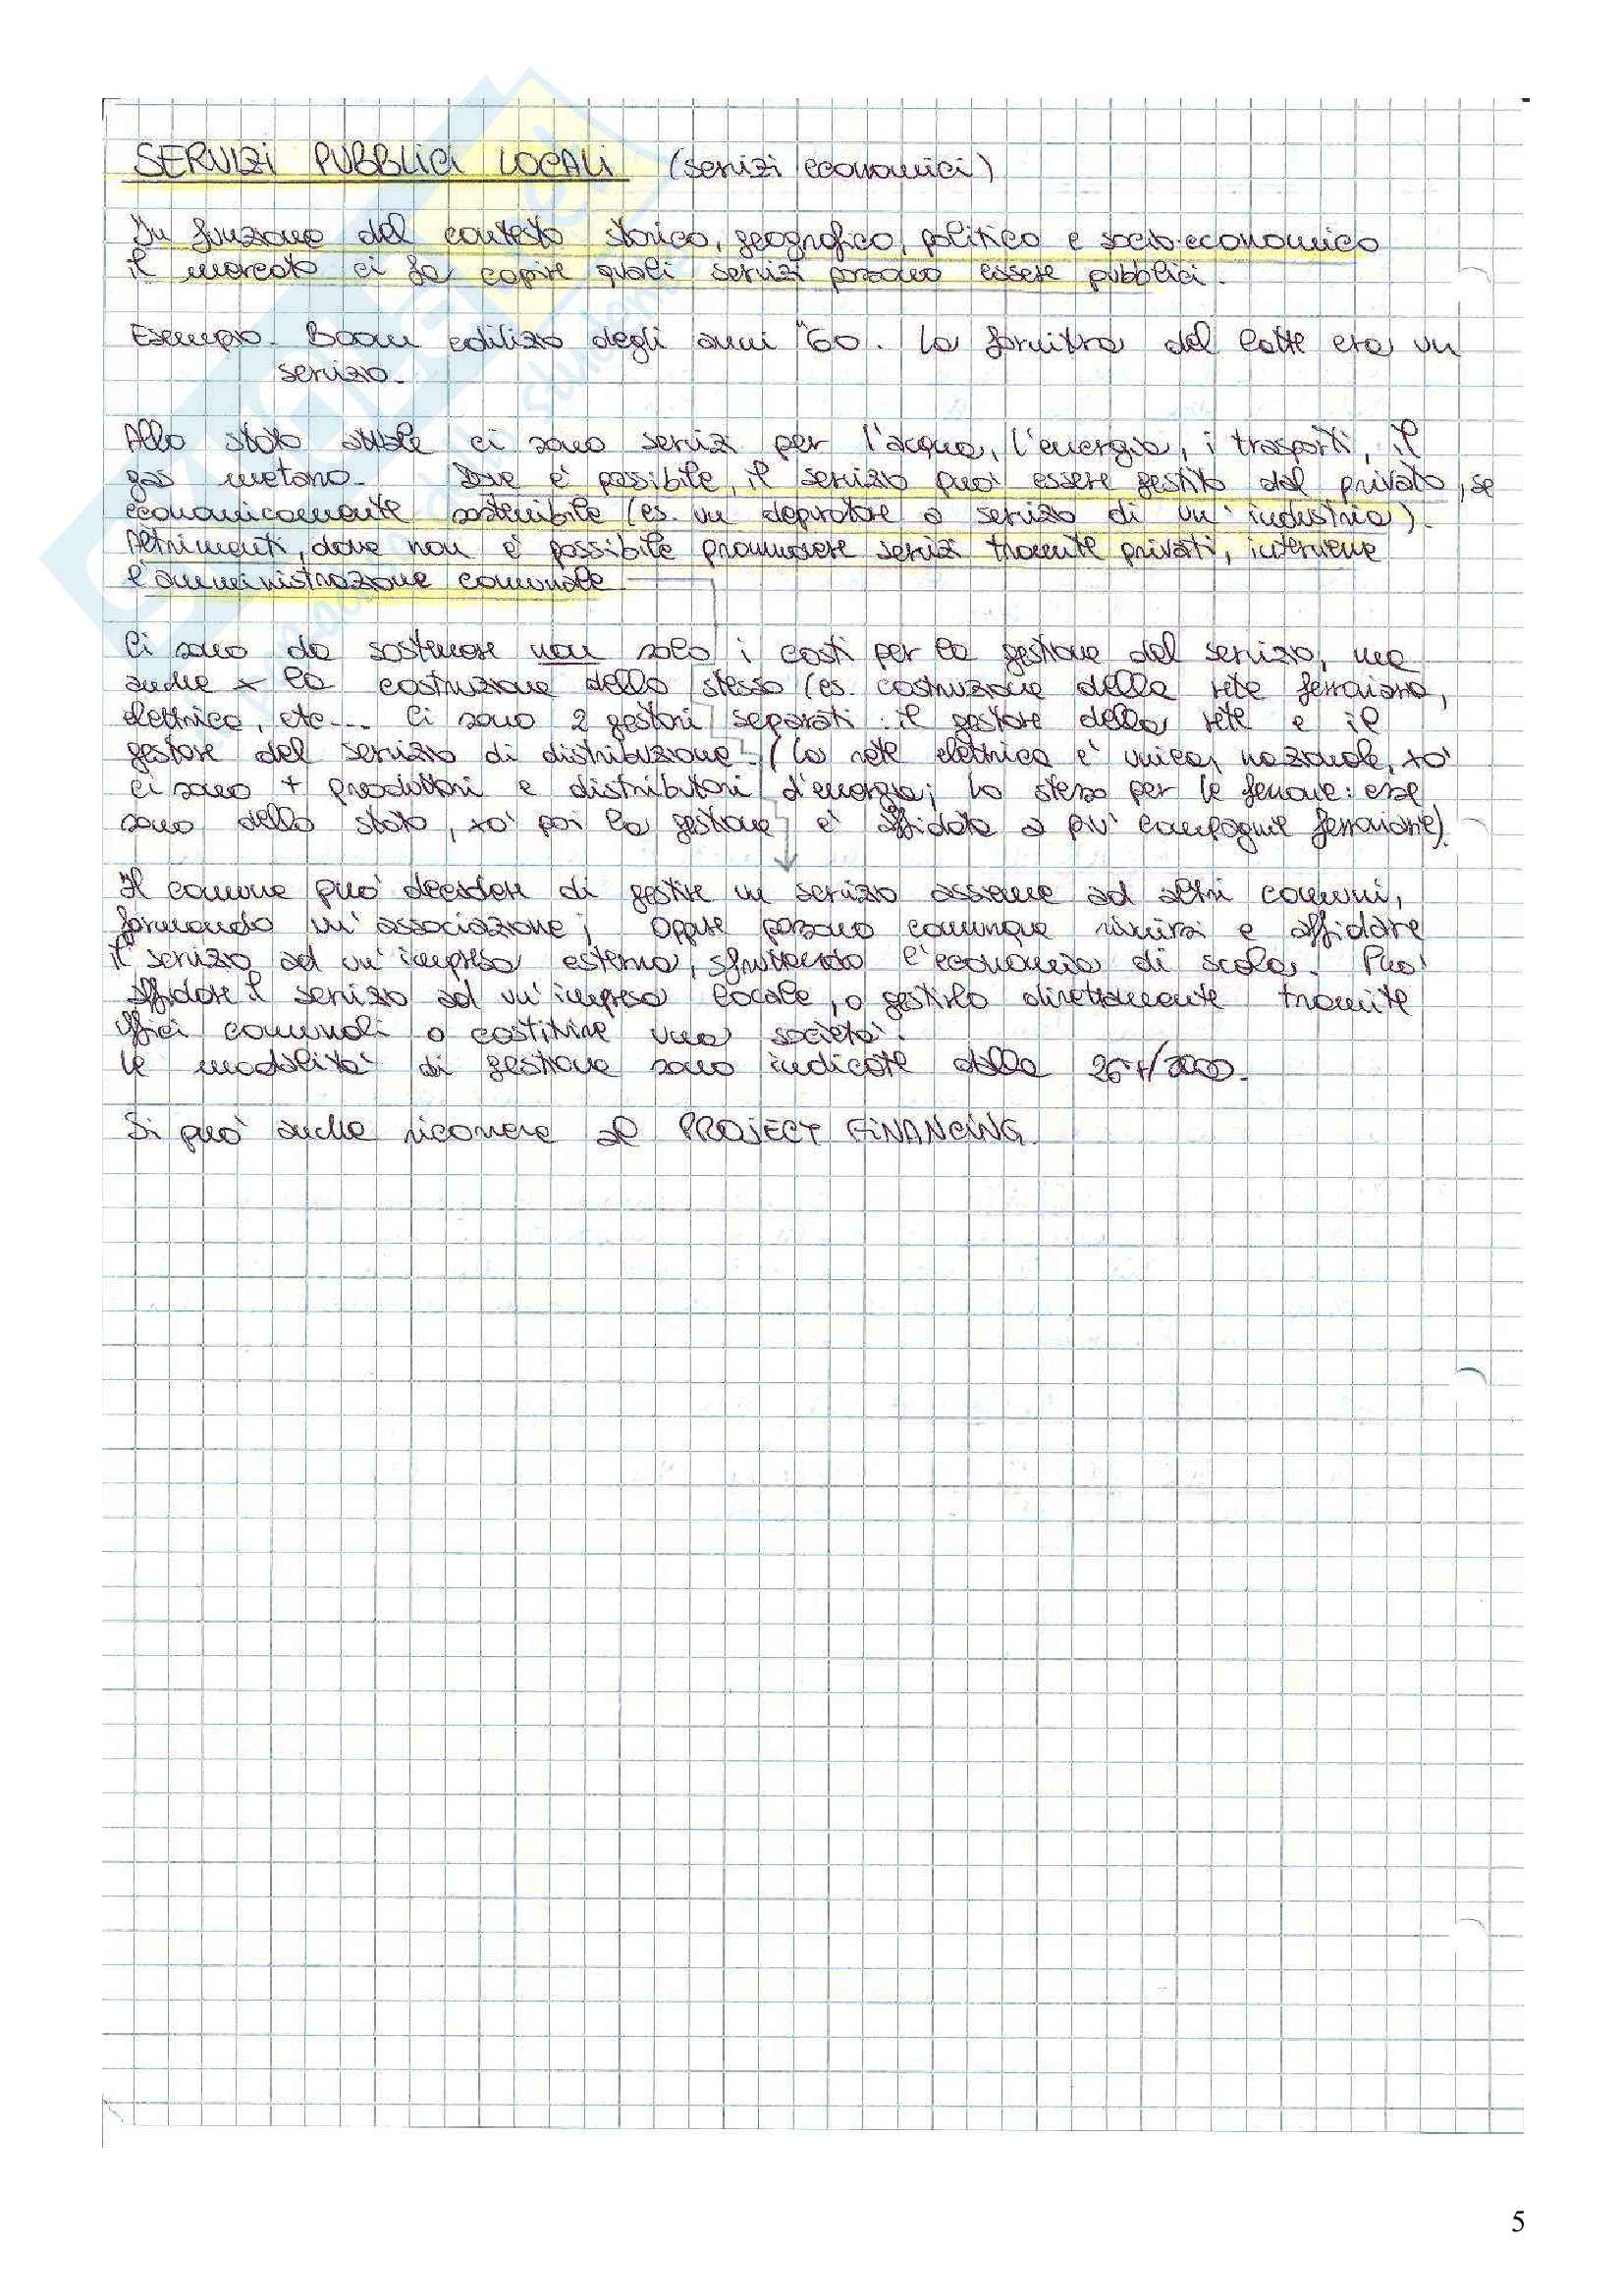 SERVIZI PUBBLICI LOCALI (servizi economici)
In funzione del contesto storico, geografico, politico e socio-economico
il mercato ci fa capire quali servizi possono essere pubblici.
Esempio. Boom edilizio degli anni '60. La fornitura del latte era un
servizio.
Allo stato attuale ci sono servizi per l'acqua, l'energia, i trasporti, il
gas metano. Dove è possibile, il servizio può essere gestito dal privato, se
economicamente sostenibile (es. un depuratore a servizio di un'industria).
Altrimenti, dove non è possibile promuovere servizi tramite privati, interviene
l'amministrazione comunale
Ci sono da sostenere non solo i costi per la gestione del servizio, ma
anche x la costruzione dello stesso (es. costruzione della rete ferroviaria,
elettrica, etc... Ci sono 2 gestori separati: il gestore della rete e il
gestore del servizio di distribuzione. (La rete elettrica è unica, nazionale, xò
ci sono + produttori e distributori d'energia; lo stesso per le ferrovie: esse
sono dello stato, xò poi la gestione è affidata a più compagnie ferroviarie).
Il comune può decidere di gestire un servizio assieme ad altri comuni,
formando un'associazione; oppure possono comunque riunirsi e affidare
il servizio ad un'impresa esterna, sfruttando l'economia di scala. Può
affidare il servizio ad un'impresa locale, o gestirlo direttamente tramite
uffici comunali o costituire una società.
Le modalità di gestione sono indicate dalla 267/2000.
Si può anche ricorrere al PROJECT FINANCING.
5